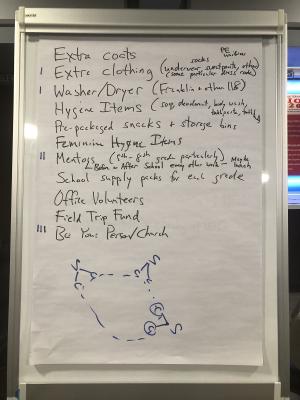 Extra coats
socks
PE uniform
I Extra clothing (underwear, sweatpants, other)
(some particular dress code)
I Washer/Dryer (Franklin + other 118)
Hygiene Items (soap, deodorant, body wash,
toothpaste, toothb
Pre-packaged snacks + storage bins
Feminine Hygiene Items
II Mentors (5th-8th grade particularly)
Before or After School every other week - Maybe lunch
School supply packs for each grade
Office Volunteers
Field Trip Fund
III Be Your Person/Church
V
V
S
S
C
V